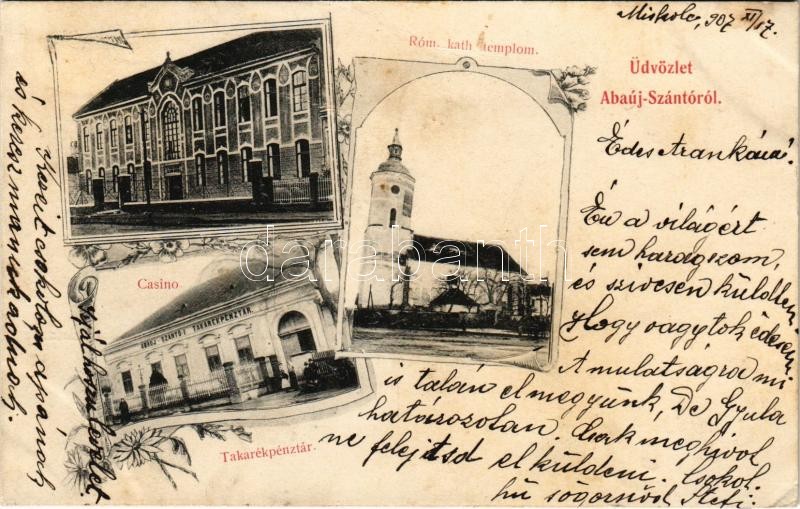 Miskolc, 907 XI/17.
Róm. kath. templom.
Üdvözlet
Abaúj-Szántóról.
Casino
ABAÚJ SZÁNTÓI TAKARÉKPÉNZTÁR.
Takarékpénztár.
Édes Arankám!
Én a világért
sem haragszom,
és szivesen küldtem.
Hogy vagytok édesem
A mulatságra mi
is talán elmegyünk, De Gyula
határozotan. Csak meghivot
ne felejtsd elküldeni. Csokol
hű sógornőd Stefi.
csokolom
Üdvözlet
darabanth